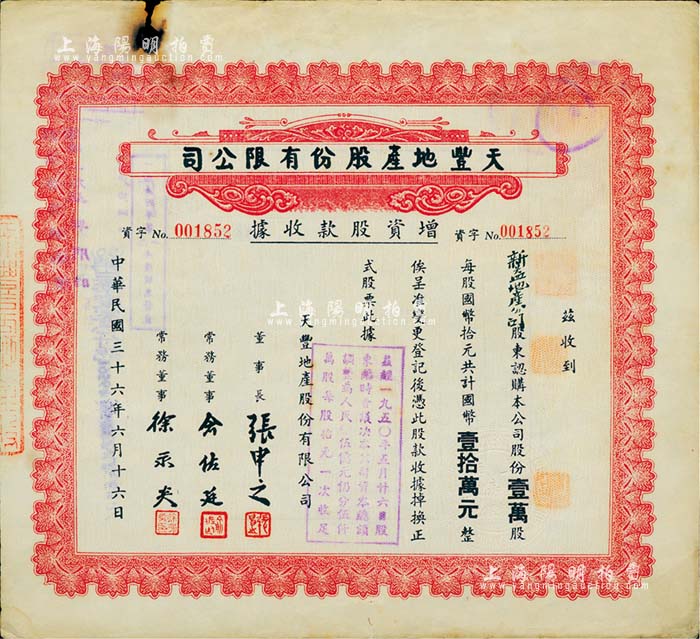 上海陽明拍賣
www.yangmingauction.com
司公限有份股產地豐天
資字 No. 001852
據收款股資增
資字 No. 001852
茲收到
新益地產公司 股東認購本公司股份壹萬股
每股國幣拾元共計國幣壹拾萬元整
俟呈准變更登記後憑此股款收據掉換正
式股票此據
茲經一九五〇年五月廿六日股
萬股每股拾元一次收足
天豐地產股份有限公司
董事長 張申之
常務董事 俞佐廷
常務董事
中華民國三十六年六月十六日
上海陽明拍賣
www.yangmingauction.com
上海陽明拍賣
www.yangmingauction.com